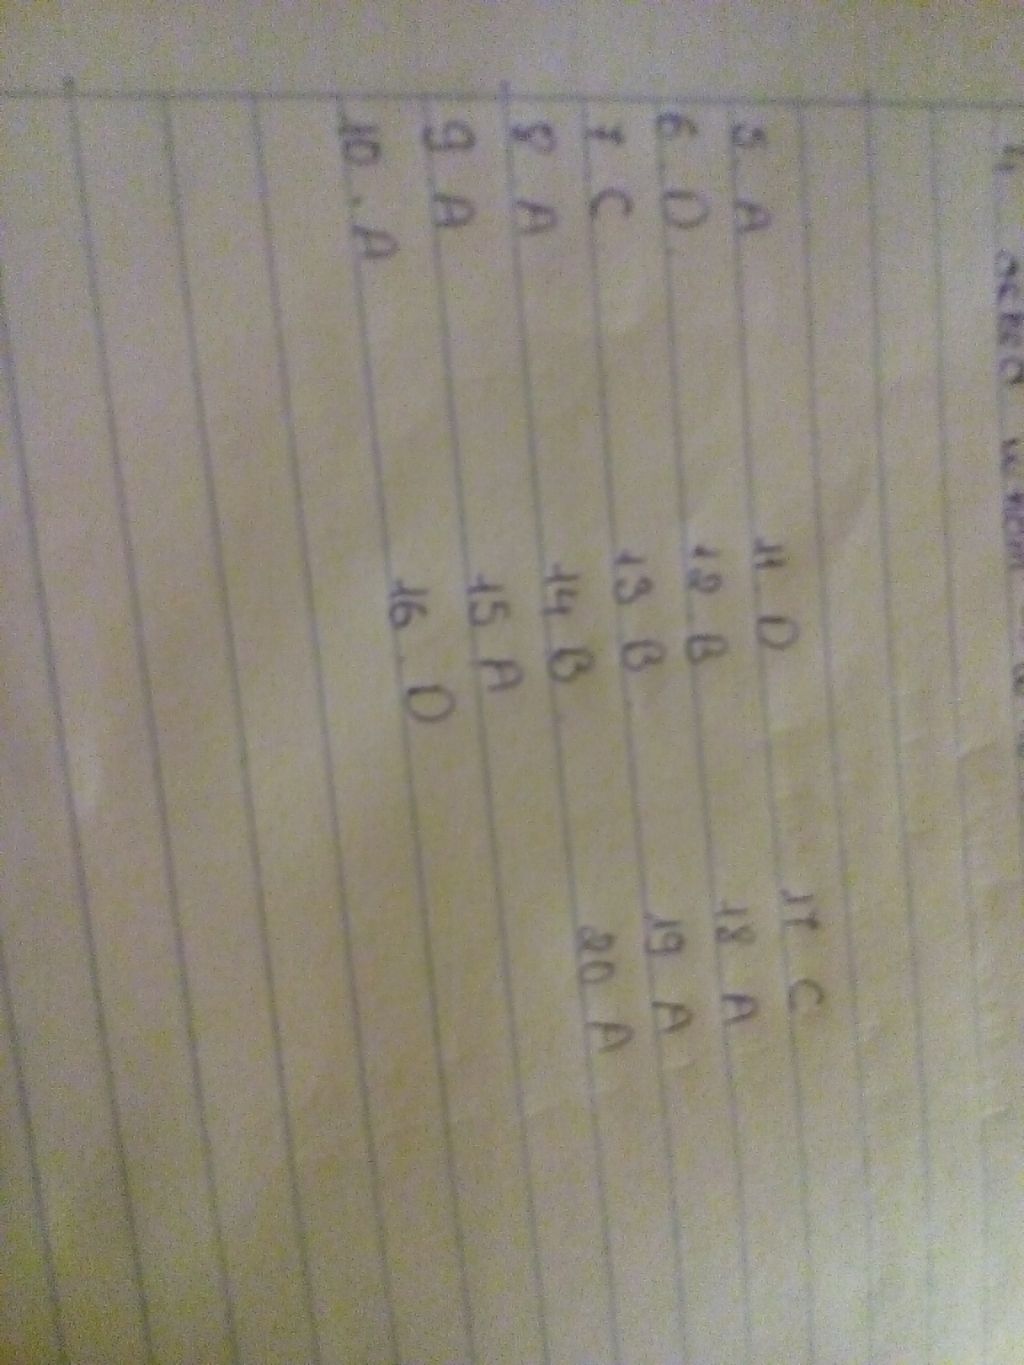 5. A 11. D 17 C
6. D 12 B 18 A
7. C 13 B 19 A
8 A 14 B 20 A
9 A 15 A
10. A 16. D